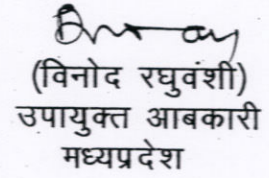 (विनोद रघुवंशी)
उपायुक्त आबकारी
मध्यप्रदेश